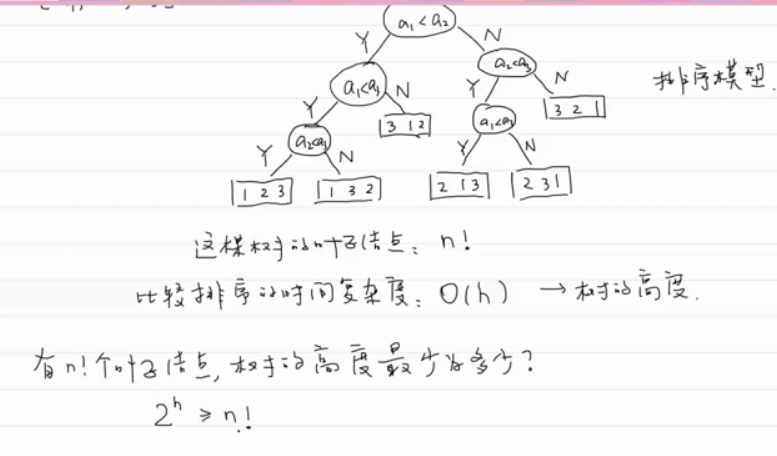 a₁<a₂
Y N
a₁<a₃ a₂<a₃
排序模型.
Y N Y N
a₂<a₃ 3 1 2 a₁<a₃ 3 2 1
Y N Y N
1 2 3 1 3 2 2 1 3 2 3 1
这棵树的叶子结点: n!
比较排序的时间复杂度: O(h) → 树的高度.
有n!个叶子结点, 树的高度最少为多少?
2ʰ ≥ n!